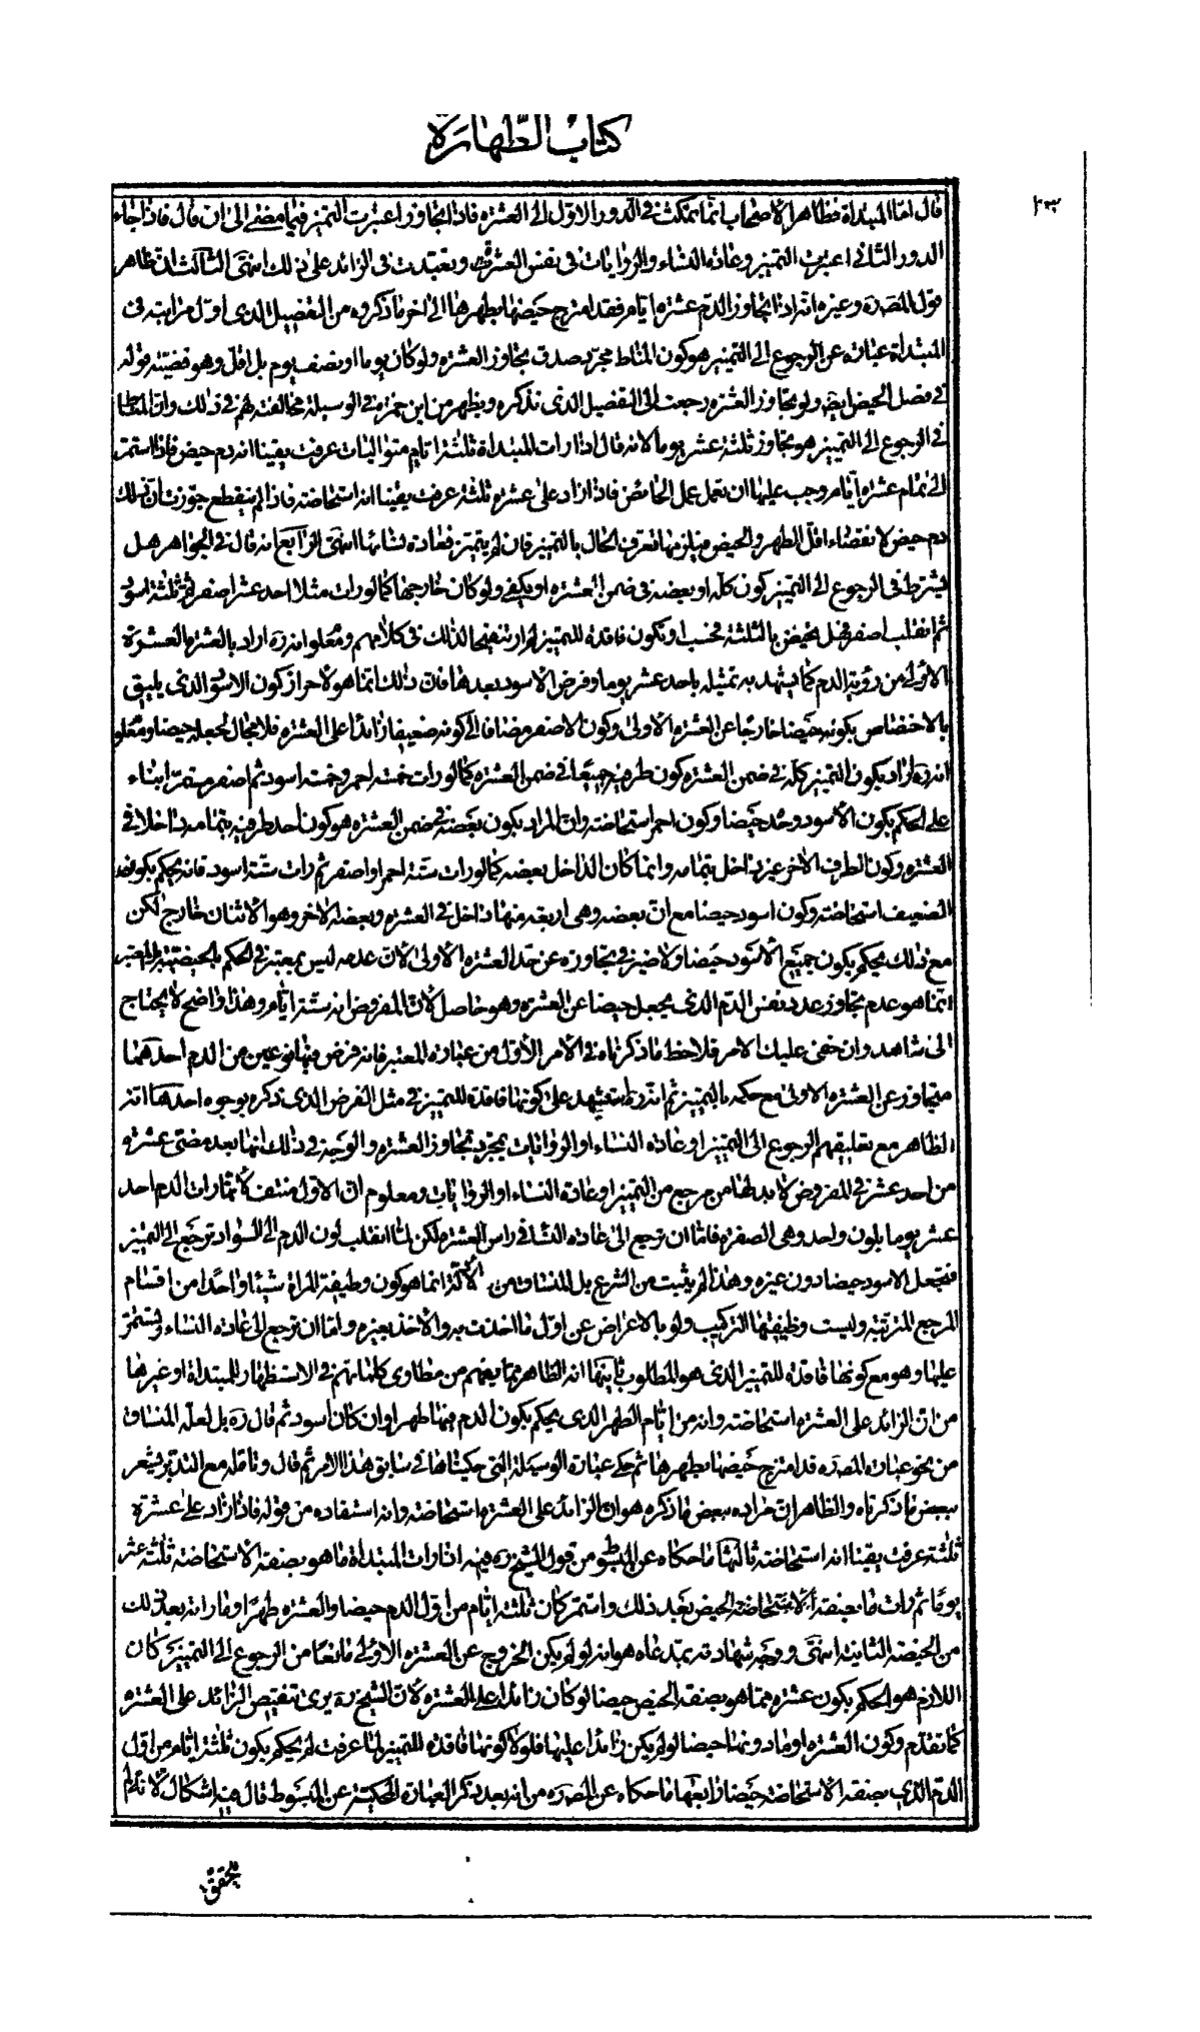 كتاب الطهارة
قال امّا المبتداة فظاهر الاصحاب انّما تمكث في الدور الاوّل الى العشرة فاذا تجاوز اعتبرت التميز فيما مضى الى ان قال فاذا جاء
الدور الثانى اعتبرت التميز وعادة النساء والروايات فى نفس العشرة وتعبّدت فى الزائد على ذلك انتهى الثالث ان ظاهر
قول المصره وغيره انّه اذا تجاوز الدّم عشرة ايّام فقد امتزج حيضها بطهرها الى اخر ما ذكروه من التفصيل الذى اوّل مراتبه فى
المبتداة عبارة عن الرجوع الى التميز هو كون المناط مجرّد صدق تجاوز العشرة ولو كان يوما او نصف يوم بل اقلّ وهو قضيّة قوله
في فصل الحيض ولو تجاوز العشرة رجعت الى التفصيل الذى نذكره ويظهر من ابن حمزة في الوسيلة مخالفته لهم في ذلك وانّ المناط
في الرجوع الى التميز هو تجاوز ثلثة عشر يوما لانه قال اذا رات المبتداة ثلثة ايّام متواليات عرفت يقينا انه دم حيض فاذا استمرّ
الى تمام عشرة ايّام وجب عليها ان تعمل عمل الحائض فاذا زاد على عشرة ثلثة عرفت يقينا انه استحاضة فاذا لم ينقطع جوّزت انّ ذلك
دم حيض لانقضاء اقلّ الطهر والحيض فيلزمها تعرف الحال بالتميز فان لم يتميّز فعادة نسائها انتهى الرابع انه قال في الجواهر هل
يشترط في الرجوع الى التميز كون كلّه او بعضه في ضمن العشرة او يكفى ولو كان خارجها كما لو رات مثلا احد عشر اصفر ثم ثلثة اسود
ثم انقلب اصفر فهل تحيض بالثلثة فحسب او تكون فاقدة للتميز لم ار تنقيحا لذلك في كلامهم ومعلوم انه ره اراد بالعشرة العشرة
الاولى من رؤية الدم كما يشهد به تمثيله باحد عشر يوما وفرض الاسود بعدها فانّ ذلك انّما هو لاحراز كون الاسود الذى يليق
بالاختصاص بكونه حيضا خارجا عن العشرة الاولى وكون الاصفر مضافا الى كونه ضعيفا زائدا على العشرة فلا مجال لجعله حيضا ومعلوم
انه ره اراد بكون التميز كلّه في ضمن العشرة كون طرفيه جميعا في ضمن العشرة كما لو رات خمسة احمر وخمسة اسود ثم اصفر مستمرّا بناء
على الحكم بكون الاسود وحده حيضا وكون احمر استحاضة وانّ المراد بكون بعضه في ضمن العشرة هو كون احد طرفيه بتمامه داخلا في
العشرة وكون الطرف الاخر غير داخل بتمامه وانما كان الداخل بعضه كما لو رات ستّة احمر او اصفر ثم رات ستّة اسود فانه يحكم بكون
الضعيف استحاضة وكون اسود حيضا مع انّ بعضه وهى اربعة منها داخل في العشرة وبعضه الاخر وهو الاثنان خارج لكن
مع ذلك يحكم بكون جميع الاسود حيضا ولا ضير في تجاوزه عن حدّ العشرة الاولى لانّ عدمه ليس بمعتبر في الحكم بالحيضيّة بل المعتبر
انّما هو عدم تجاوز عدد نفس الدّم الذى يجعل حيضا عن العشرة وهو حاصل لانّ المفروض انه ستّة ايّام وهذا واضح لا يحتاج
الى شاهد وان خفى عليك الامر فلاحظ ما ذكرناه في الامر الاوّل من عبارة المعتبر فانه فرض فيها نوعين من الدم احدهما
متجاوز عن العشرة الاولى مع حكمه بالتميز ثم انّه ره استشهد على كونها فاقدة للتميز في مثل الفرض الذى ذكره بوجوه احدها انّه
الظاهر مع تعليقهم الرجوع الى التميز او عادة النساء او الروايات بمجرّد تجاوز العشرة والوجه في ذلك انّها بعد مضىّ عشرة
من احد عشر في المفروض لا بدّ لها من مرجع من التميز او عادة النساء او الروايات ومعلوم انّ الاوّل منتف لانّها رات الدم احد
عشر يوما بلون واحد وهى الصفرة فامّا ان ترجع الى عادة النساء في راس العشرة لكن لمّا انقلب لون الدم الى السواد ترجع الى التميز
فتجعل الاسود حيضا دون غيره وهذا لم يثبت من الشرع بل المنساق من الادلّة انما هو كون وظيفة المراة شيئا واحدا من اقسام
المرجع المترتبة وليست وظيفتها التركيب ولو بالاعراض عن اوّل ما اخذت به والاخذ بغيره وامّا ان ترجع الى عادة النساء وتستمرّ
عليها وهو مع كونها فاقدة للتميز الذى هو المطلوب ثانيها انه الظاهر ممّا يفهم من مطاوى كلماتهم في الاستظهار للمبتداة او غيرها
من انّ الزائد على العشرة استحاضة وانه من ايّام الطهر الذى يحكم بكون الدم فيها طهرا وان كان اسود ثم قال ره بل لعلّه المنساق
من نحو عبارة المصره قد امتزج حيضها بطهرها ثم حكى عبارة الوسيلة التى حكيناها في سابق هذا الامر ثم قال وتامّله مع التدبّر يشعر
ببعض ما ذكرناه والظاهر انّ مراده ببعض ما ذكره هو انّ الزائد على العشرة استحاضة وانه استفاده من قوله فاذا زاد على عشرة
ثلثة عرفت يقينا انه استحاضة ثالثها ما حكاه عن المبسوط من قول الشيخ ره فيه ان رات المبتداة ما هو بصفة الاستحاضة ثلثة عشر
يوما ثم رات ما بصفة الحيض بعد ذلك واستمرّ كان ثلثة ايّام من اوّل الدم حيضا والعشرة طهرا وما راته بعد ذلك
من الحيضة الثانية انتهى ووجه شهادته بمدّعاه هو انه لو لم يكن الخروج عن العشرة الاولى مانعا من الرجوع الى التميز كان
اللازم هو الحكم بكون عشرة ممّا هو بصفة الحيض حيضا لو كان زائدا على العشرة لانّ الشيخ ره يرى تنقيص الزائد على العشرة
كما تقدّم وكون العشرة او ما دونها حيضا لو لم يكن زائدا عليها فلولا كونها فاقدة للتميز لما عرفت لم يحكم بكون ثلثة ايّام من اوّل
الدّم الذى بصفة الاستحاضة حيضا رابعها ما حكاه عن المصره من انه بعد ذكر العبارة المحكيّة عن المبسوط قال فيه اشكال لانه لم
يتحقق